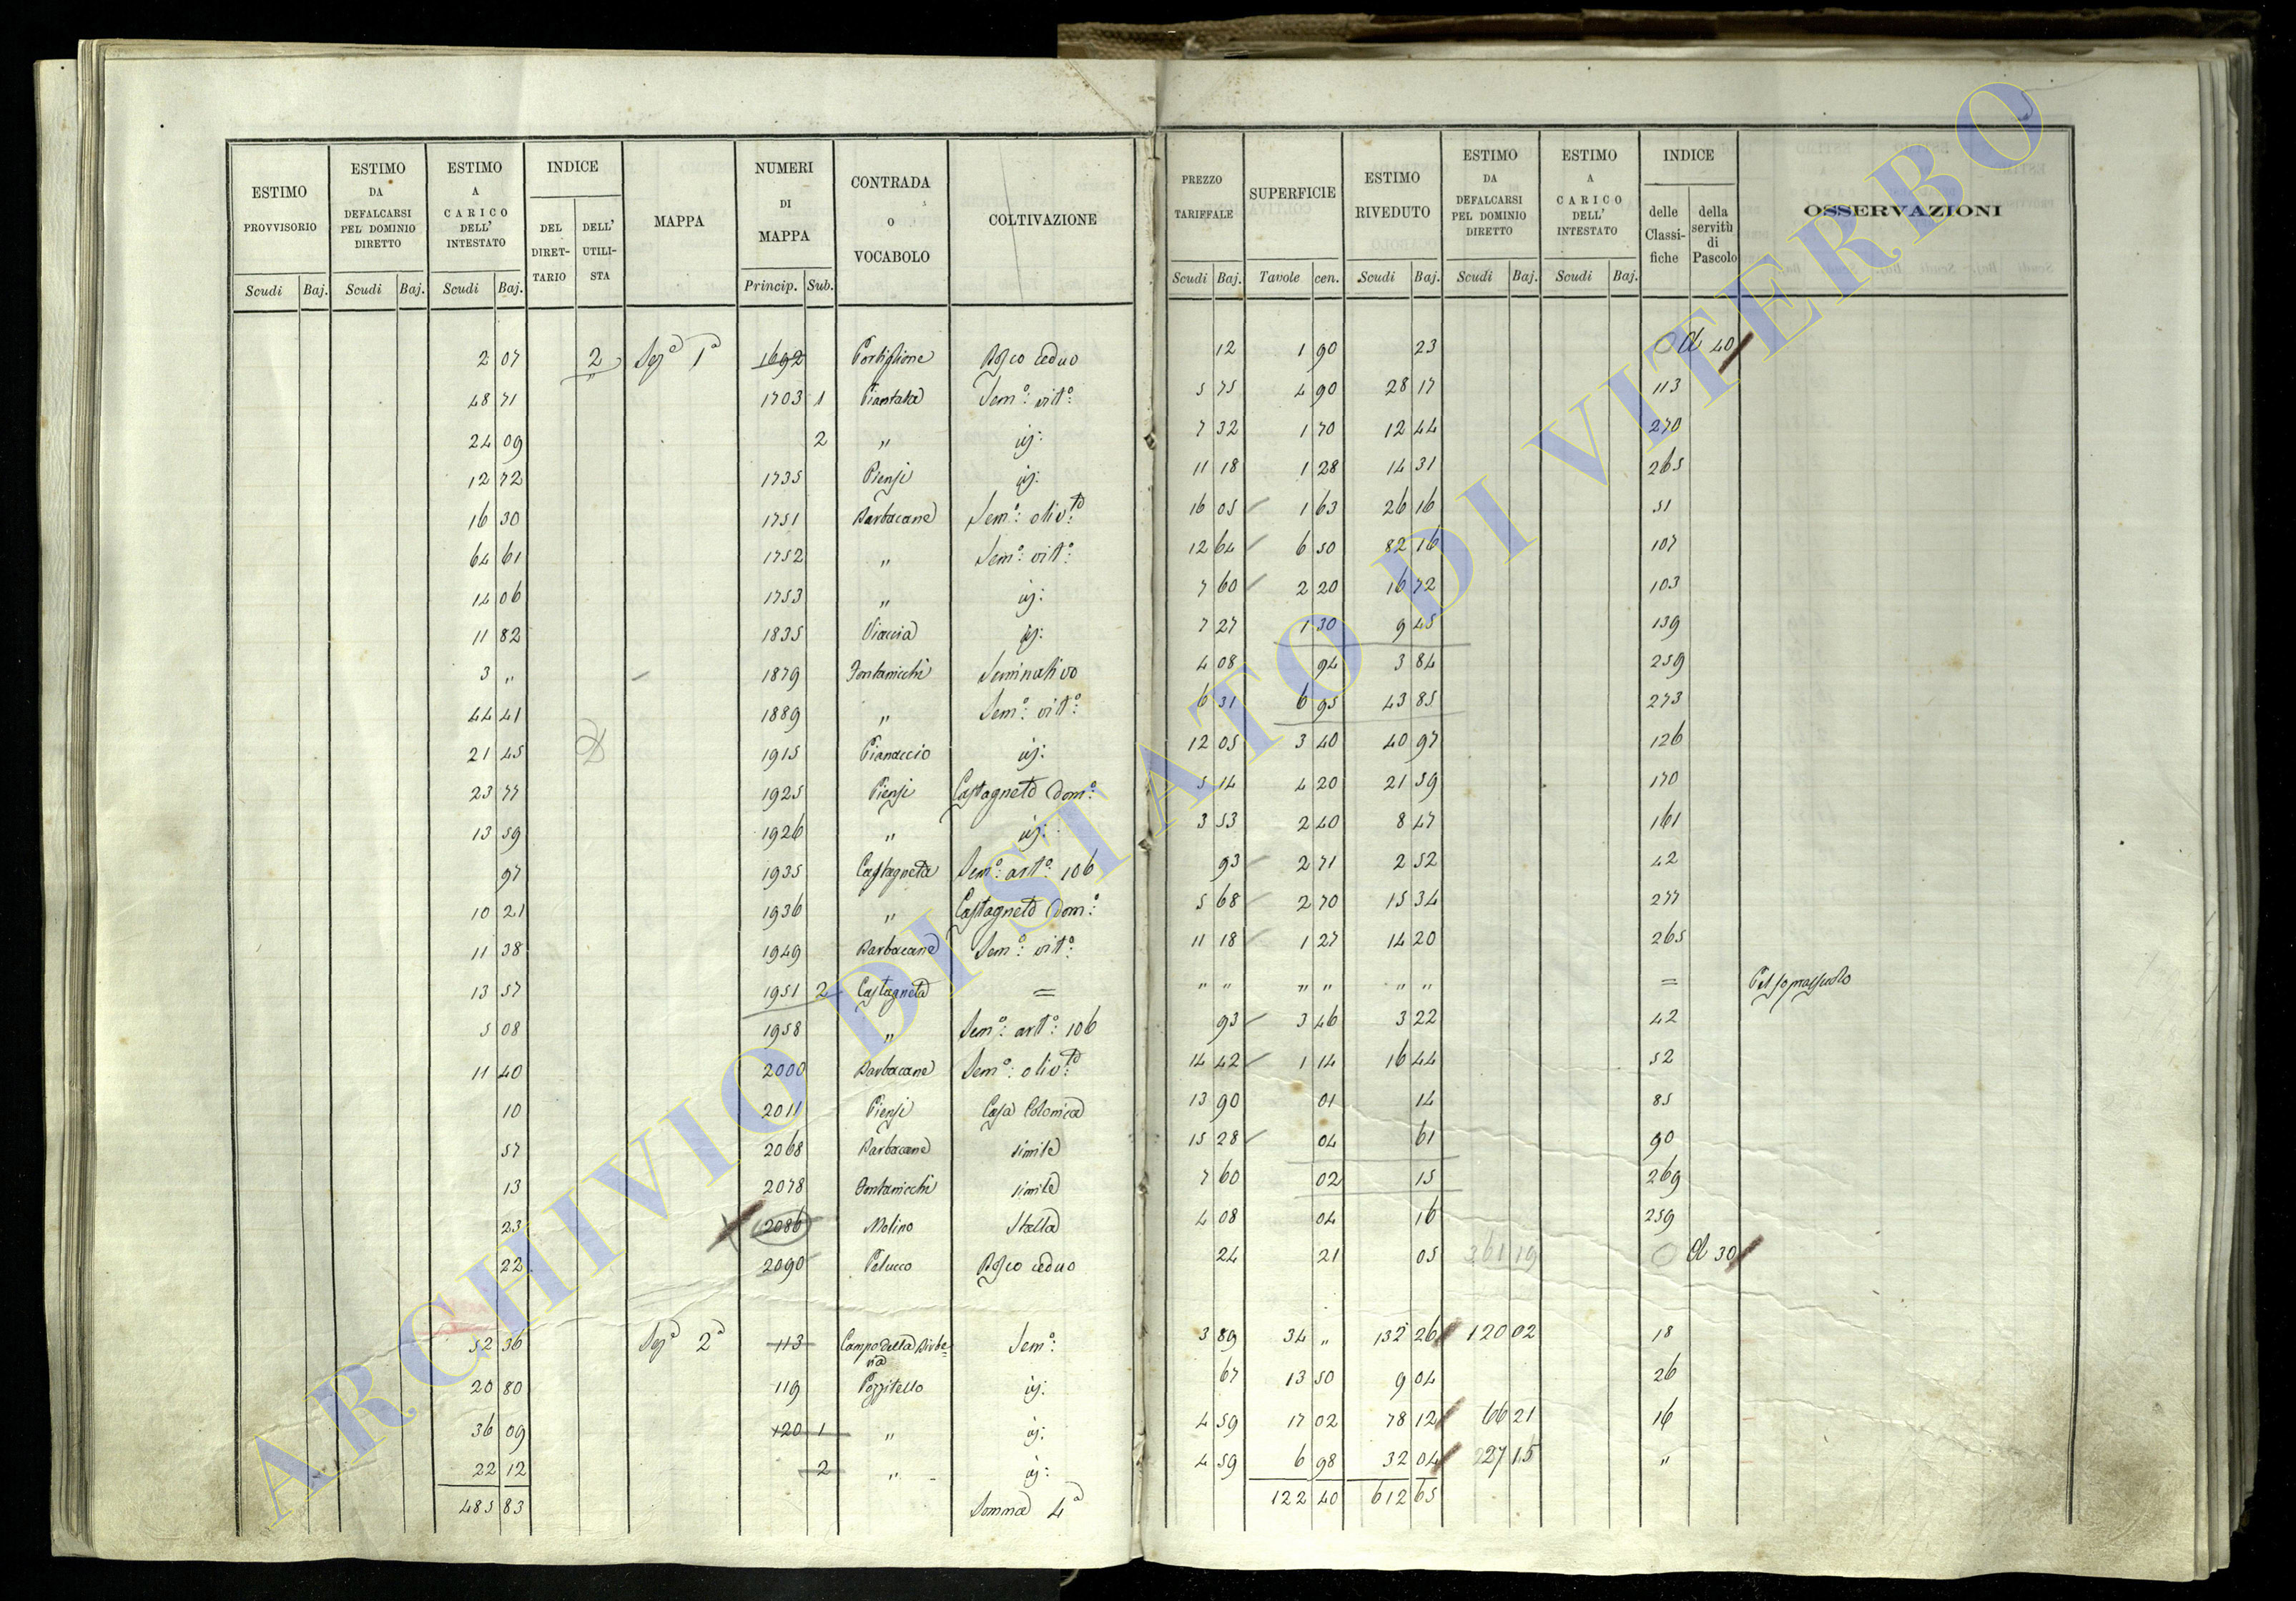 ESTIMO PROVVISORIO | ESTIMO DA DEFALCARSI PEL DOMINIO DIRETTO | ESTIMO A CARICO DELL' INTESTATO | INDICE | MAPPA | NUMERI DI MAPPA | CONTRADA O VOCABOLO | COLTIVAZIONE | PREZZO TARIFFALE | SUPERFICIE | ESTIMO RIVEDUTO | ESTIMO DA DEFALCARSI PEL DOMINIO DIRETTO | ESTIMO A CARICO DELL' INTESTATO | INDICE | OSSERVAZIONI
DEL DIRET-TARIO | DELL' UTILI-STA | delle Classi-fiche | della servitù di Pascolo
Scudi | Baj. | Scudi | Baj. | Scudi | Baj. | Princip. | Sub. | Scudi | Baj. | Tavole | cen. | Scudi | Baj. | Scudi | Baj. | Scudi | Baj.
2 07 | 2 | Sez.a 1a | 1692 | Portiglione | Bosco ceduo | 12 | 1 90 | 23 | Cl 40
48 71 | 1703 1 | Piantata | Sem.o: vit.o: | 5 75 | 4 90 | 28 17 | 113
24 09 | 2 | " | id: | 7 32 | 1 70 | 12 44 | 270
12 72 | 1735 | Piensi | id: | 11 18 | 1 28 | 14 31 | 265
16 30 | 1751 | Barbacane | Sem.o: oliv.to | 16 05 | 1 63 | 26 16 | 51
64 61 | 1752 | " | Sem.o: vit.o: | 12 64 | 6 50 | 82 16 | 107
14 06 | 1753 | " | id: | 7 60 | 2 20 | 16 72 | 103
11 82 | 1835 | Viaccia | id: | 7 27 | 1 30 | 9 45 | 139
3 " | 1879 | Fontanicchi | Seminativo | 4 08 | 94 | 3 84 | 259
44 41 | 1889 | " | Sem.o: vit.o: | 6 31 | 6 95 | 43 85 | 273
21 45 | 1915 | Pianaccio | id: | 12 05 | 3 40 | 40 97 | 126
23 77 | 1925 | Piensi | Castagneto dom.o: | 5 14 | 4 20 | 21 59 | 170
13 59 | 1926 | " | id: | 3 53 | 2 40 | 8 47 | 161
97 | 1935 | Castagneta | Sem.o: art.o: 106 | 93 | 2 71 | 2 52 | 42
10 21 | 1936 | " | Castagneto dom.o: | 5 68 | 2 70 | 15 34 | 277
11 38 | 1949 | Barbacane | Sem.o: vit.o: | 11 18 | 1 27 | 14 20 | 265
13 57 | 1951 2 | Castagneta | = | " " | " " | " " | =
5 08 | 1958 | " | Sem.o: art.o: 106 | 93 | 3 46 | 3 22 | 42
11 40 | 2000 | Barbacane | Sem.o: oliv.to | 14 42 | 1 14 | 16 44 | 52
10 | 2011 | Piensi | Casa Colonica | 13 90 | 01 | 14 | 85
57 | 2068 | Barbacane | simile | 15 28 | 04 | 61 | 90
13 | 2078 | Fontanicchi | simile | 7 60 | 02 | 15 | 269
23 | 2086 | Molino | Stalla | 4 08 | 04 | 16 | 259
22 | 2090 | Pelucco | Bosco ceduo | 24 | 21 | 05 | 361 19 | Cl 30
52 36 | Sez.a 2a | 113 | Campo della Birberia | Sem.o: | 3 89 | 34 " | 132 26 | 120 02 | 18
20 80 | 119 | Pozzitello | id: | 67 | 13 50 | 9 04 | 26
36 09 | 120 1 | " | id: | 4 59 | 17 02 | 78 12 | 66 21 | 16
22 12 | 2 | " | id: | 4 59 | 6 98 | 32 04 | 227 15 | "
485 83 | Somma 4a | 122 40 | 612 65
ARCHIVIO DI STATO DI VITERBO